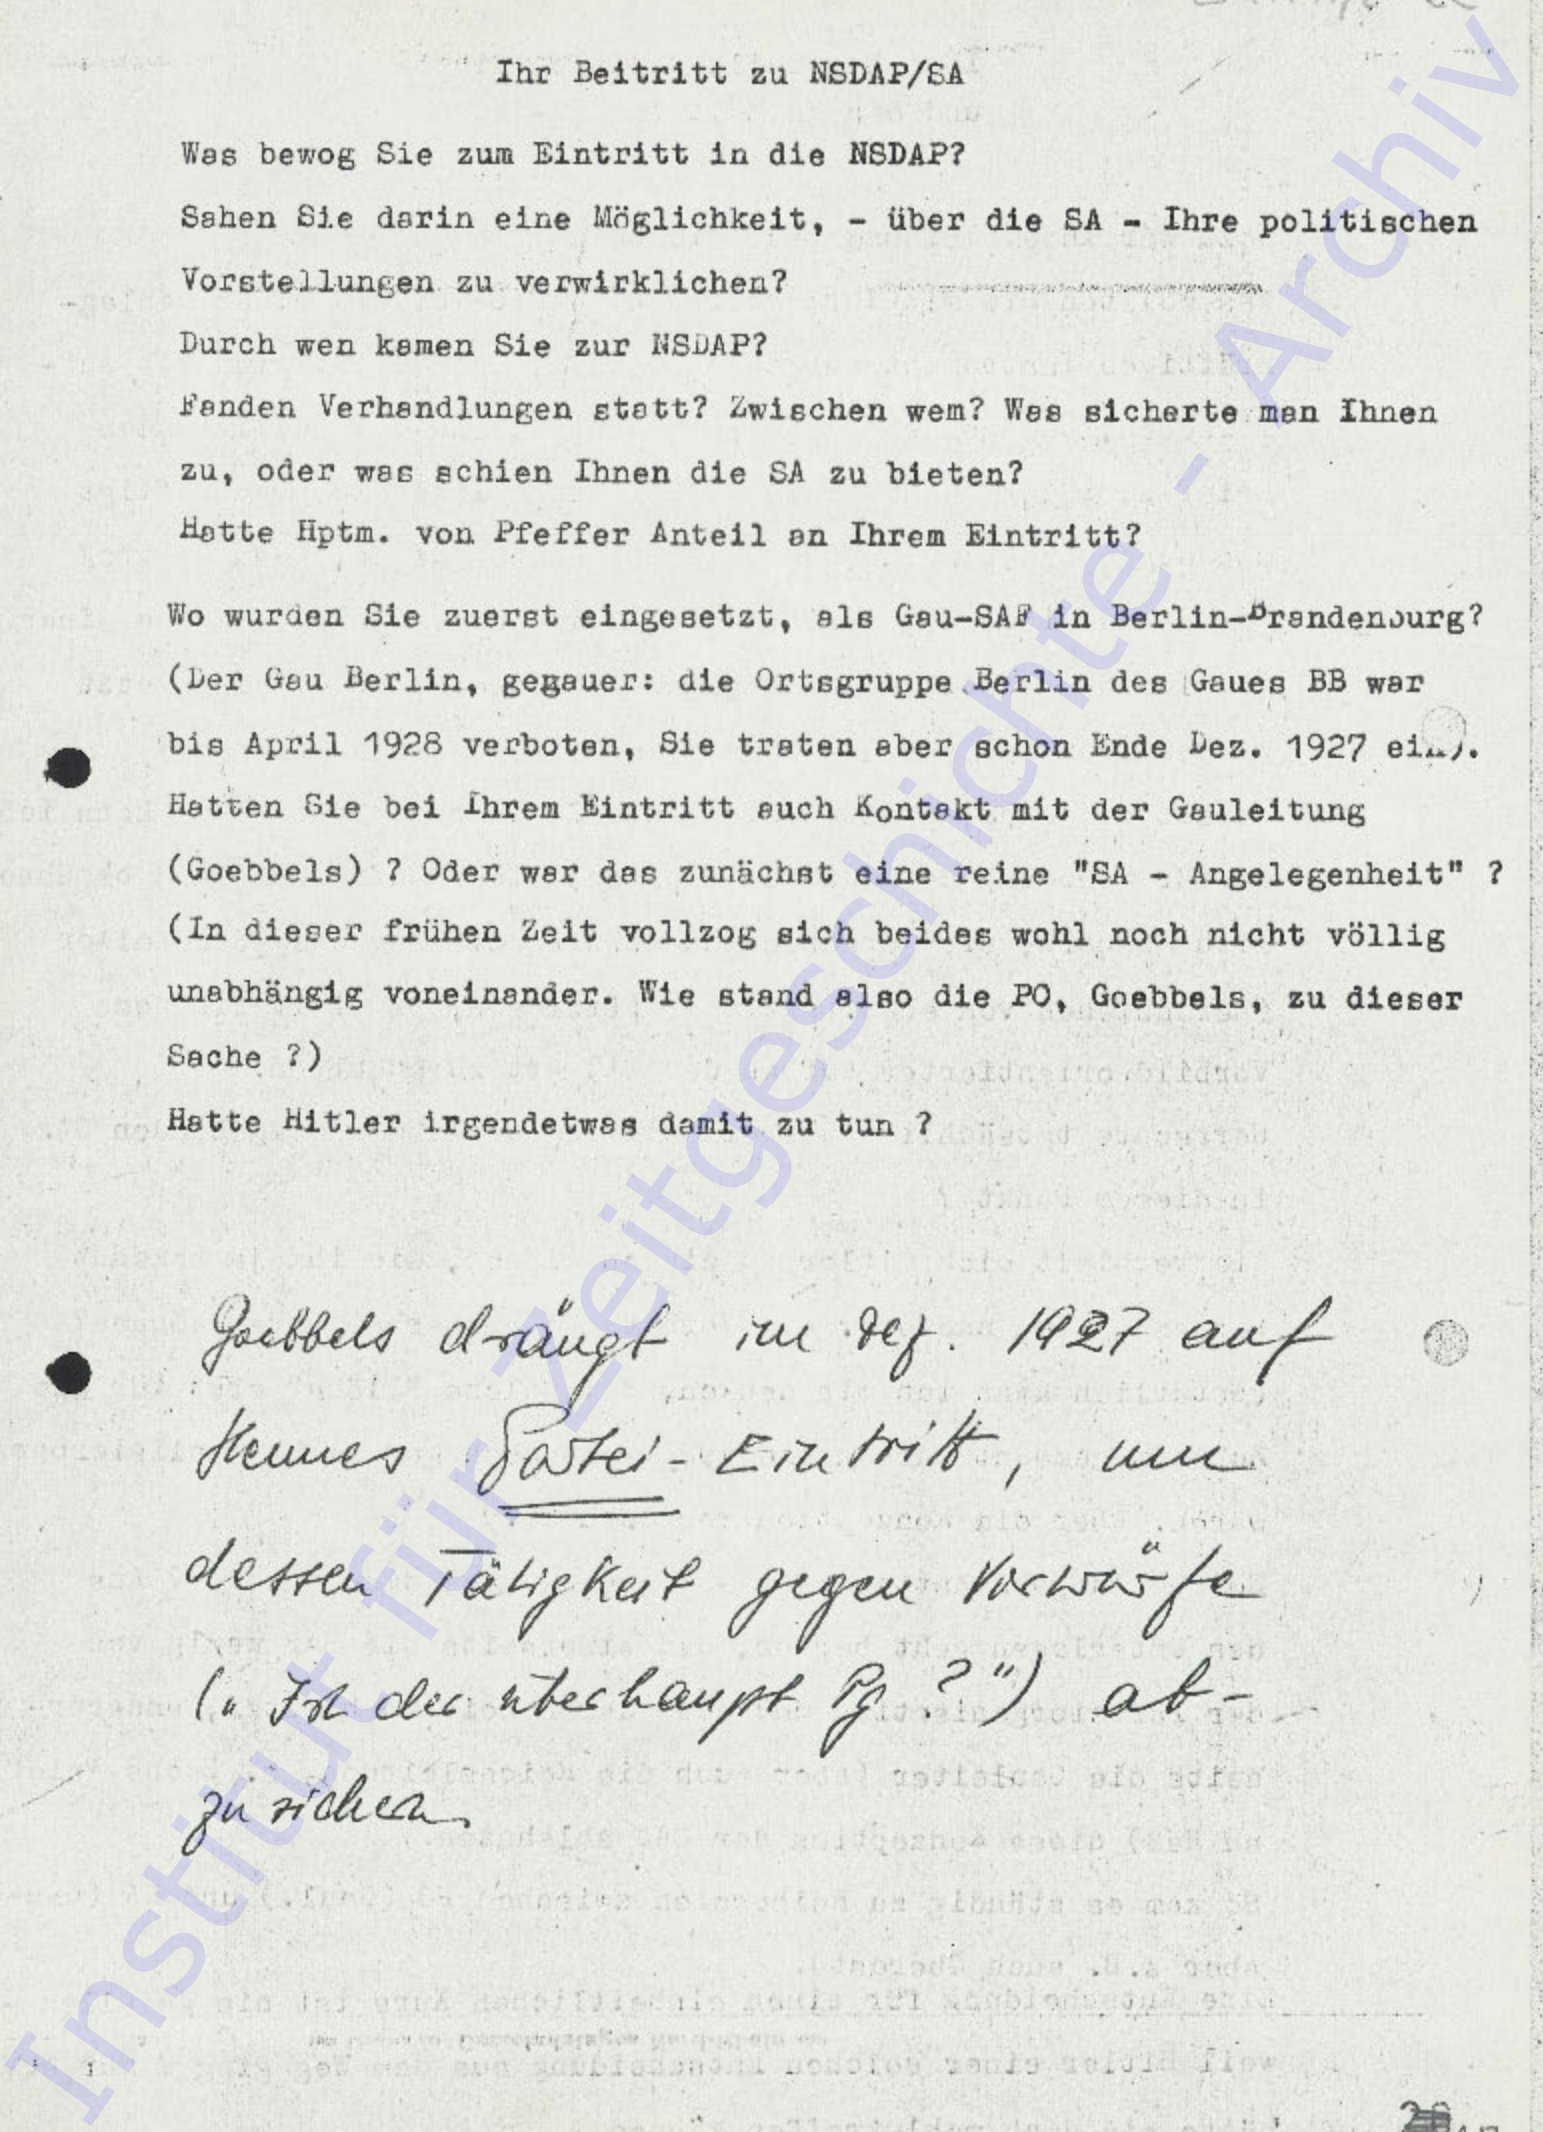 Ihr Beitritt zu NSDAP/SA
Was bewog Sie zum Eintritt in die NSDAP?
Sahen Sie darin eine Möglichkeit, - über die SA - Ihre politischen
Vorstellungen zu verwirklichen?
Durch wen kamen Sie zur NSDAP?
Fanden Verhandlungen statt? Zwischen wem? Was sicherte man Ihnen
zu, oder was schien Ihnen die SA zu bieten?
Hatte Hptm. von Pfeffer Anteil an Ihrem Eintritt?
Wo wurden Sie zuerst eingesetzt, als Gau-SAF in Berlin-Brandenburg?
(Der Gau Berlin, gegauer: die Ortsgruppe Berlin des Gaues BB war
bis April 1928 verboten, Sie traten aber schon Ende Dez. 1927 ein).
Hatten Sie bei Ihrem Eintritt auch Kontakt mit der Gauleitung
(Goebbels) ? Oder war das zunächst eine reine "SA - Angelegenheit" ?
(In dieser frühen Zeit vollzog sich beides wohl noch nicht völlig
unabhängig voneinander. Wie stand also die PO, Goebbels, zu dieser
Sache ?)
Hatte Hitler irgendetwas damit zu tun ?
Goebbels drängt im Dez. 1927 auf
Stennes Partei-Eintritt, um
dessen Tätigkeit gegen Vorwürfe
(„Ist der überhaupt Pg ?") ab-
zusichern.
Institut für Zeitgeschichte - Archiv